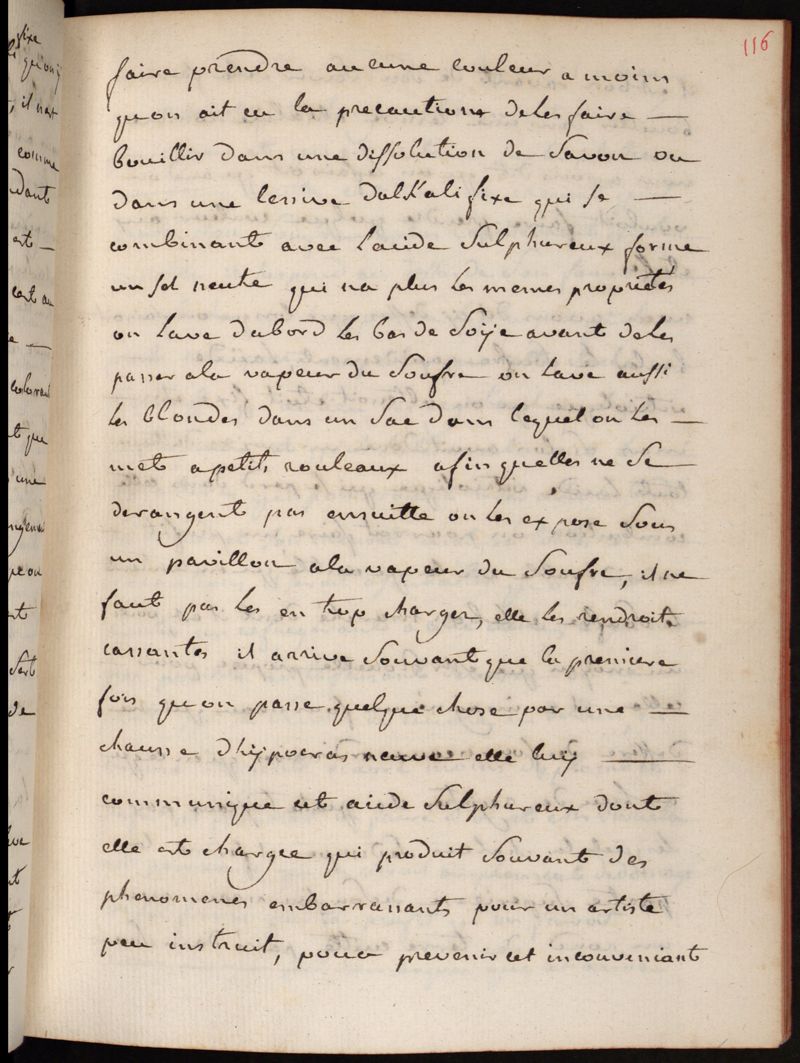 116
faire prendre aucune couleur a moins
quon ait eu la precautions deles faire —
bouillir dans une dissolution de Savon ou
dans une lessive dalkali fixe qui se —
combinant avec lacide Sulphureux forme
un sel neutre qui na plus les memes proprietés
on lave dabord les bas de Soije avant deles
passer ala vapeur du Soufre on lave aussi
les blondes dans un Sac dans lequel on les —
met apetits rouleaux afin quelles ne Se
derangent pas ensuitte on les expose Sous
un pavillon ala vapeur du Soufre, il ne
faut pas les en trop charger, elle les rendroit
cassantes il arrive Souvant que la premiere
fois quon passe quelque chose par une —
chausse dhijpocras neuve elle luij —
communique cet acide Sulphureux dont
elle est chargée qui produit Souvant des
phenomenes embarrassants pour un artiste
peu instruit, pour prevenir cet inconveniant
fixe
quon
il nest
comme
dant
est —
cest au
colorant
et que
une
que on
sert
de